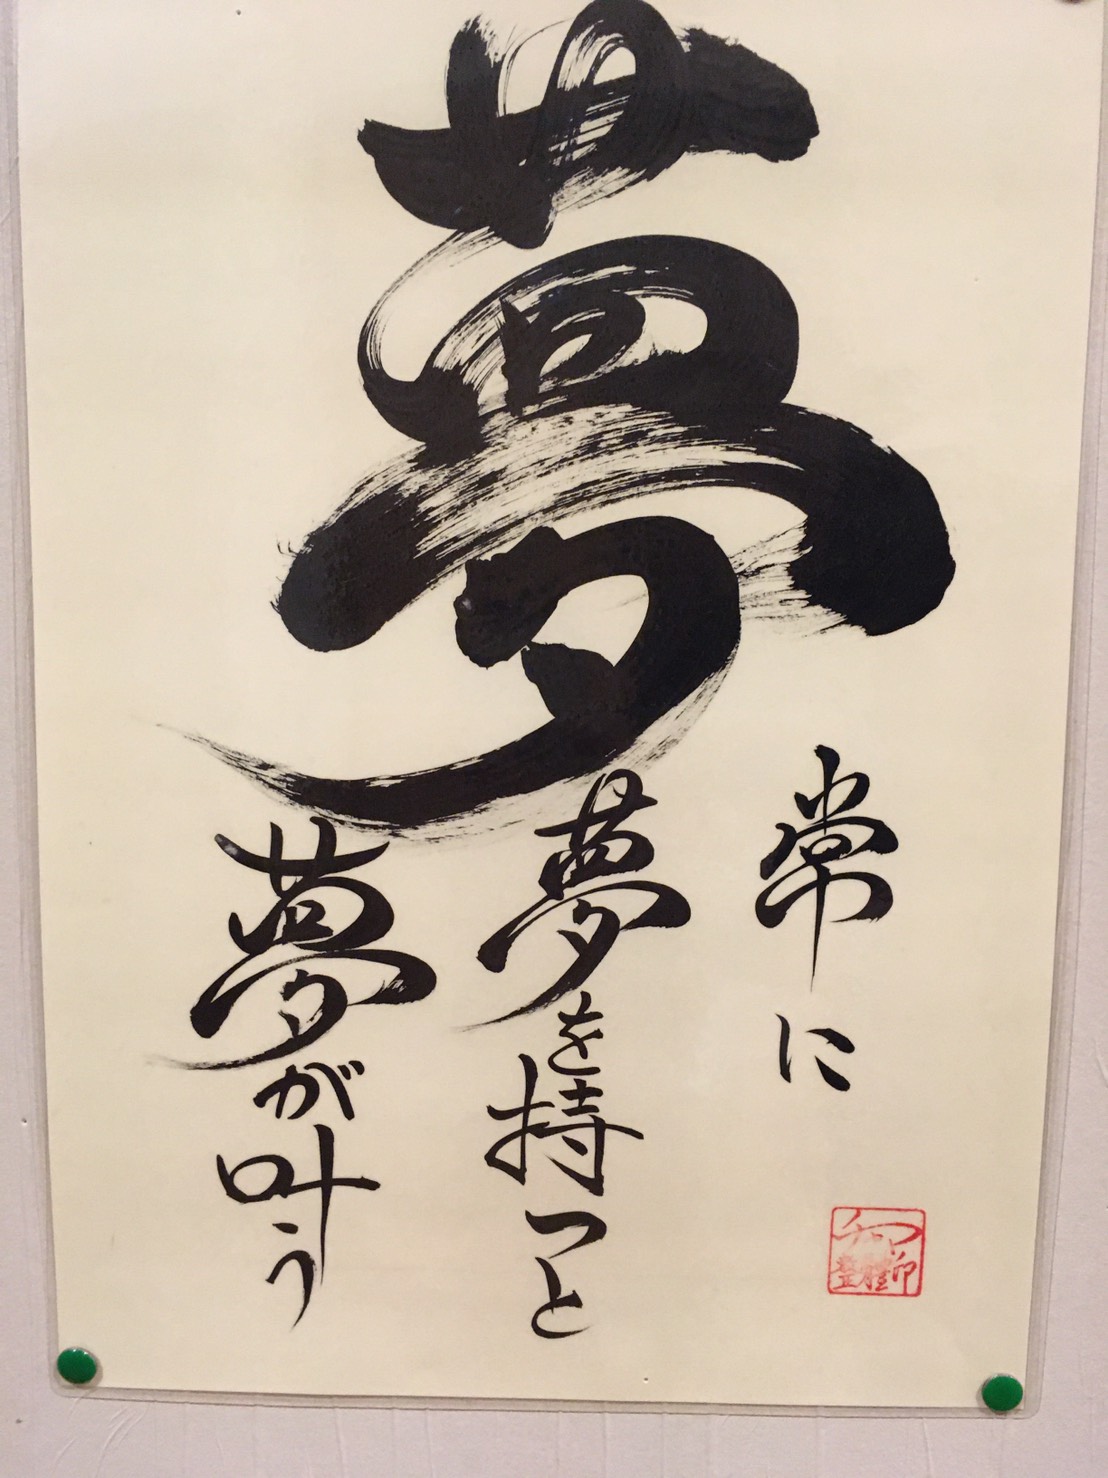 夢
常に
夢を持つと
夢が叶う